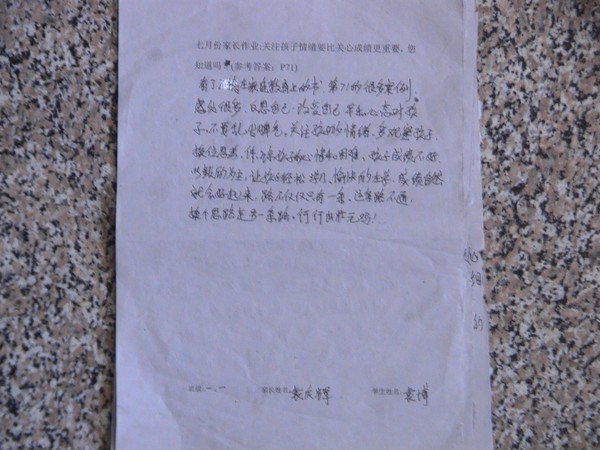 七月份家长作业:关注孩子情绪要比关心成绩更重要，您
知道吗？(参考答案：P71)
看了 家庭教育上好书 第71的很多案例
感知很多，反思自己，改变自己，平和心态对孩
子，不要乱 ，关注孩子的情绪，多观察孩子，
换位思考，体谅孩子的心情和困难，孩子成绩不好，
以鼓励为主，让孩子轻松学习，愉快的上学，成绩自然
就会好起来，路不仅仅只有一条，这条路不通，
换个思路走另一条路，行行出状元吗！
班级:一、一 家长姓名: 袁庆辉 学生姓名: 袁博
的